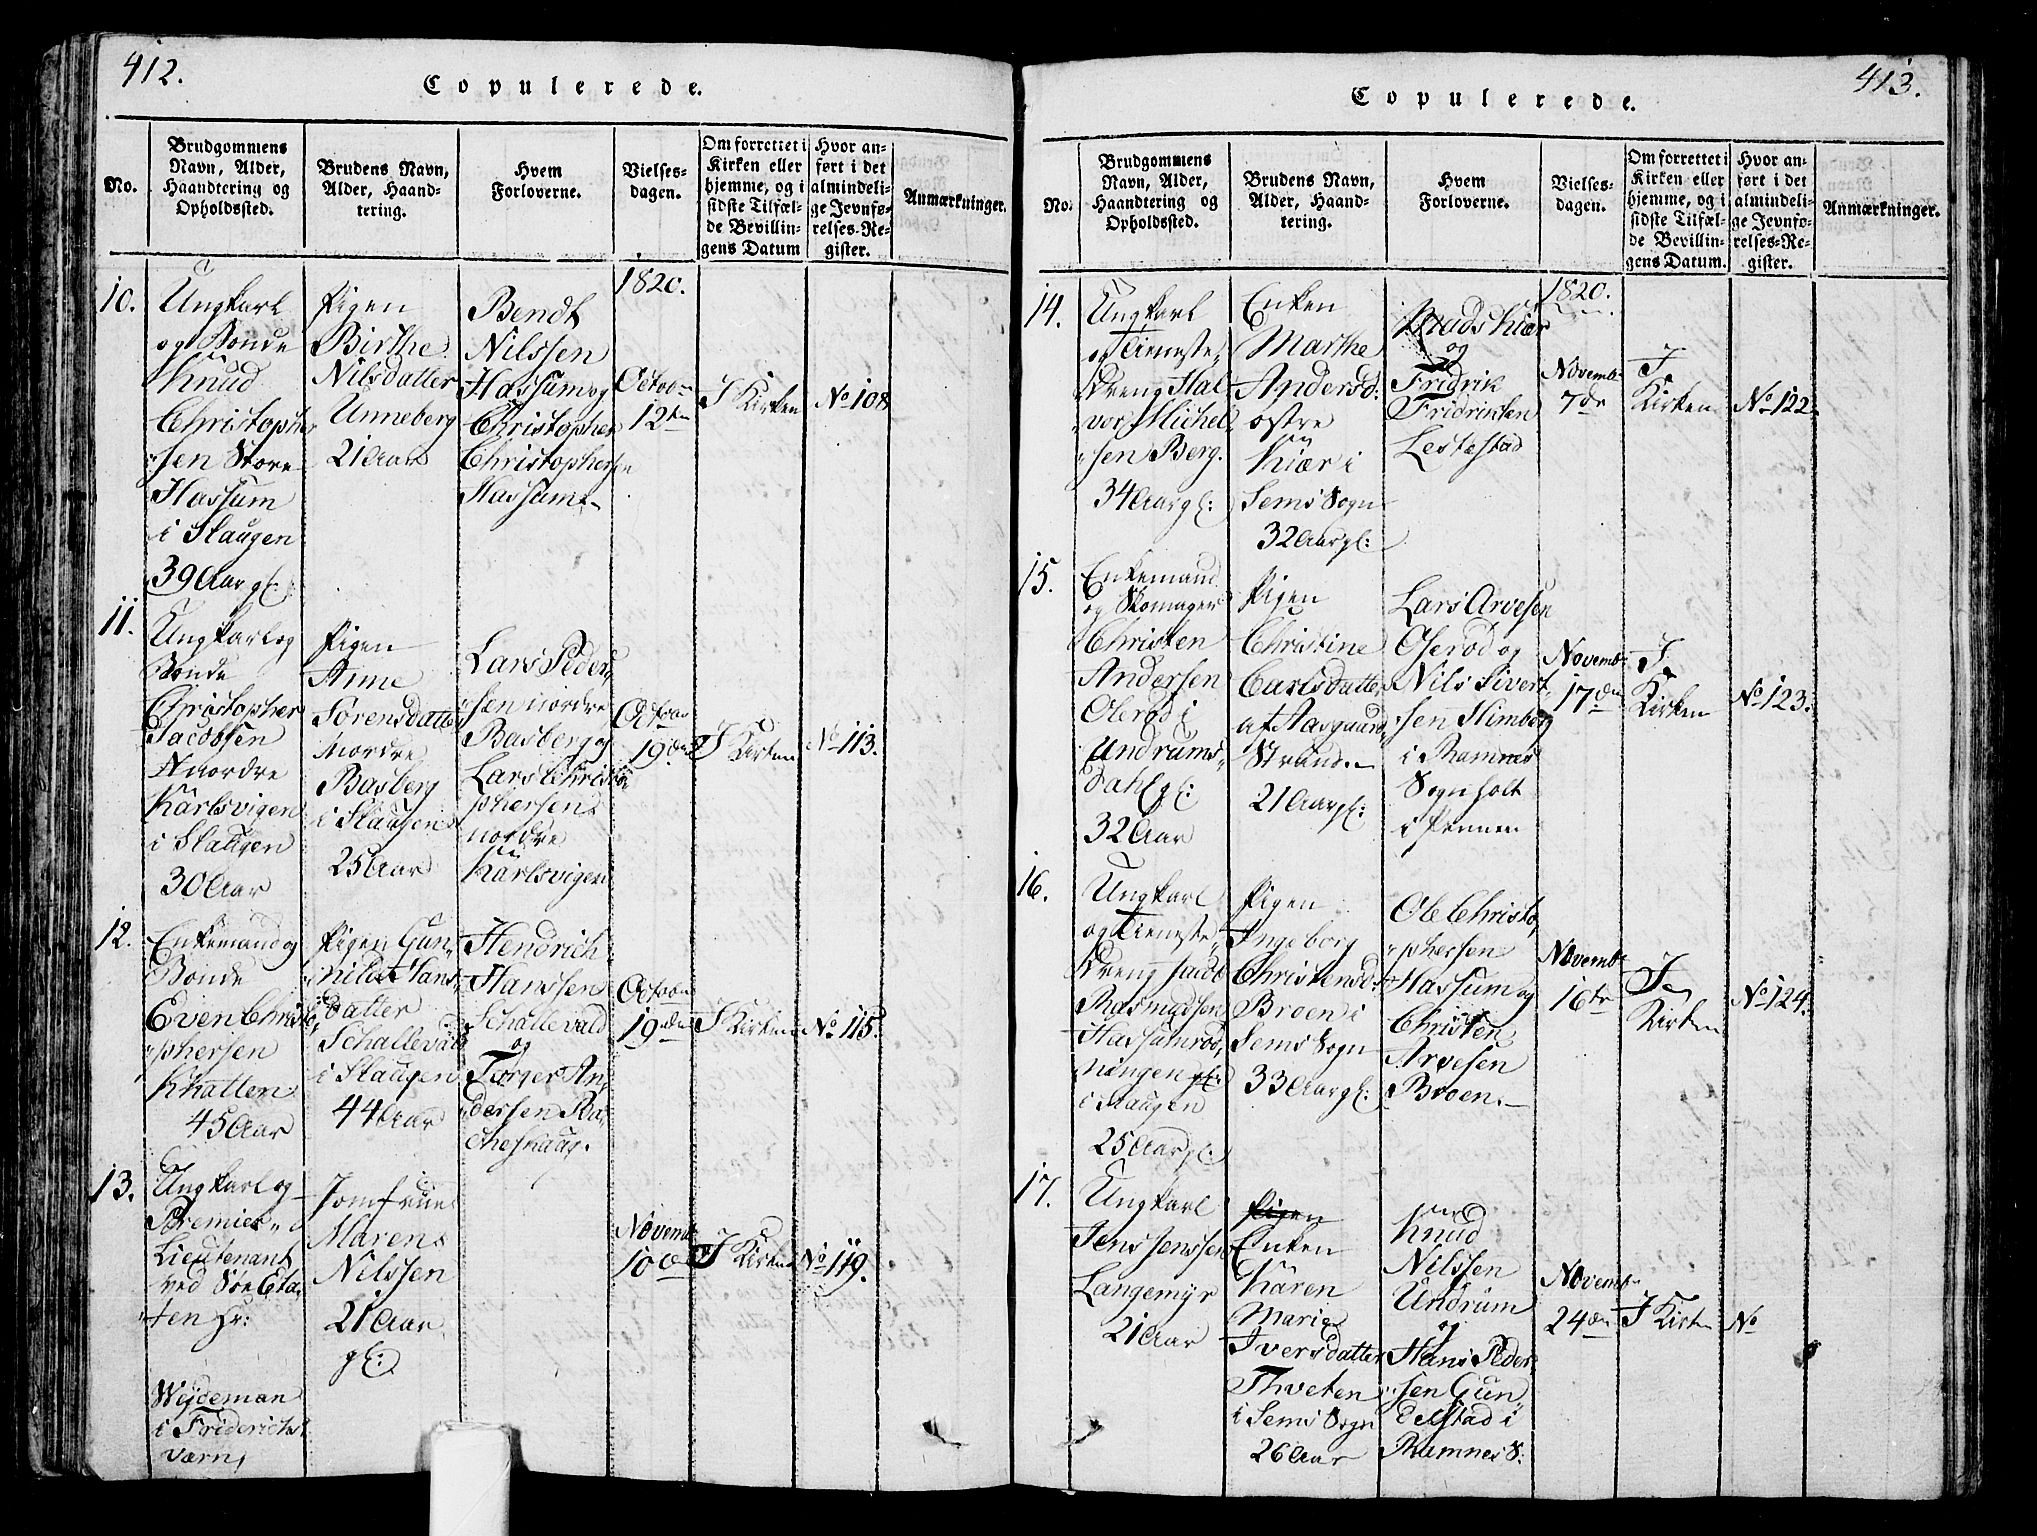 412.
Copulerede.
No.
Brudgommens
Navn, Alder,
Haandtering og
Opholdssted.
Brudens Navn,
Alder, Haand-
tering.
Hvem
Forloverne.
Vielses-
dagen.
Om forrettet i
Kirken eller
hjemme, og i
sidste Tilfæl-
de Bevillin-
gens Datum
Hvor an-
ført i det
almindeli-
ge Jevnfø-
relses-Re-
gister.
Anmærkninger.
10.
Ungkarl
og Bonde
Knud
Christopher
sen Store
Hassum
i Slaugen
39 Aar gl:
Pigen
Birthe
Nilsdatter
Unneberg
21 Aar
Bendt
Nilssen
Hassum og
Christopher
Christophersen
Hassum
1820.
Octobr
12te
I Kirken
No 108
11.
Ungkarl og
Bonde
Christopher
Jacobsen
nordre
Karlsvigen
i Slaugen
30 Aar
Pigen
Anne
Sørensdatter
Nordre
Basberg
i Slaugen
25 Aar
Lars Peder„
„sen nordre
Basberg og
Lars Christo
phersen
nordre
Karlsvigen
Octobr
19de
I Kirken
No 113.
12.
Enkemand og
Bonde
Even Christo
„phersen
Knatten
45 Aar
Pigen Gun„
nild Hans„
datter
Schallevald
i Slaugen
44 Aar
Hendrich
Hanssen
Schallevald
og
Torger An„
„dersen Ra„
cheshaug.
Octobr
19de
I Kirken
No 115.
13.
Ungkarl og
Premier„
Lieutenant
ved Søe Eta„
„ten Hr:
Weideman
i Friderichs
værn
Jomfrue
Maren
Nilssen
21 Aar
gl:
Novemb
10de
I Kirken
No 119.
413.
Copulerede.
No.
Brudgommens
Navn, Alder,
Haandtering og
Opholdssted.
Brudens Navn,
Alder, Haand-
tering.
Hvem
Forloverne.
Vielses-
dagen.
Om forrettet i
Kirken eller
hjemme, og i
sidste Tilfæl-
de Bevillin-
gens Datum.
Hvor an-
ført i det
almindeli-
ge Jevnfø-
relses-Re-
gister.
Anmærkninger.
14.
Ungkarl
og Tieneste„
Dreng Hal
„vor Michel
„sen Berg.
34 Aar gl:
Enken
Marthe
Andersd:
østre
Kiær i
Sems Sogn
32 Aar gl:
Mads Kiær
og
Fridrik
Fridriksen
Lestestad
1820.
Novemb
7de
I
Kirken
No 122.
15.
Enkemand
og Skomager
Christen
Andersen
Olerød i
Undrums„
Dahl gl:
32 Aar
Pigen
Christine
Carlsdatter
af Aasgaard
Strand.
21 Aar gl:
Lars Arvesen
Oserød og
Nils Sivert„
„sen Himberg
i Ramnes
Sogn holt
i Pennen
Novemb
17de
I
Kirken
No 123.
16.
Ungkarl
og Tieneste„
Dreng Jacob
Rasmussen
Hassumrød„
ningen gl:
i Slaugen
25 Aar gl:
Pigen
Ingeborg
Christensd:
Broen i
Sems Sogn
33 Aar gl:
Ole Christo„
„phersen
Hassum og
Christen
Arvesen
Broen.
Novemb
16de
I
Kirken
No 124.
17.
Ungkarl
Jens Jenssen
Langemyr
21 Aar
Pigen
Enken
Karen
Marie
Iversdatter
Thveten
i Sems Sogn
26 Aar
Knud
Nilssen
Undrum
og
Hans Peder„
„sen Gun„
delstad i
Ramnes S:
Novemb
24de
I Kirken
No